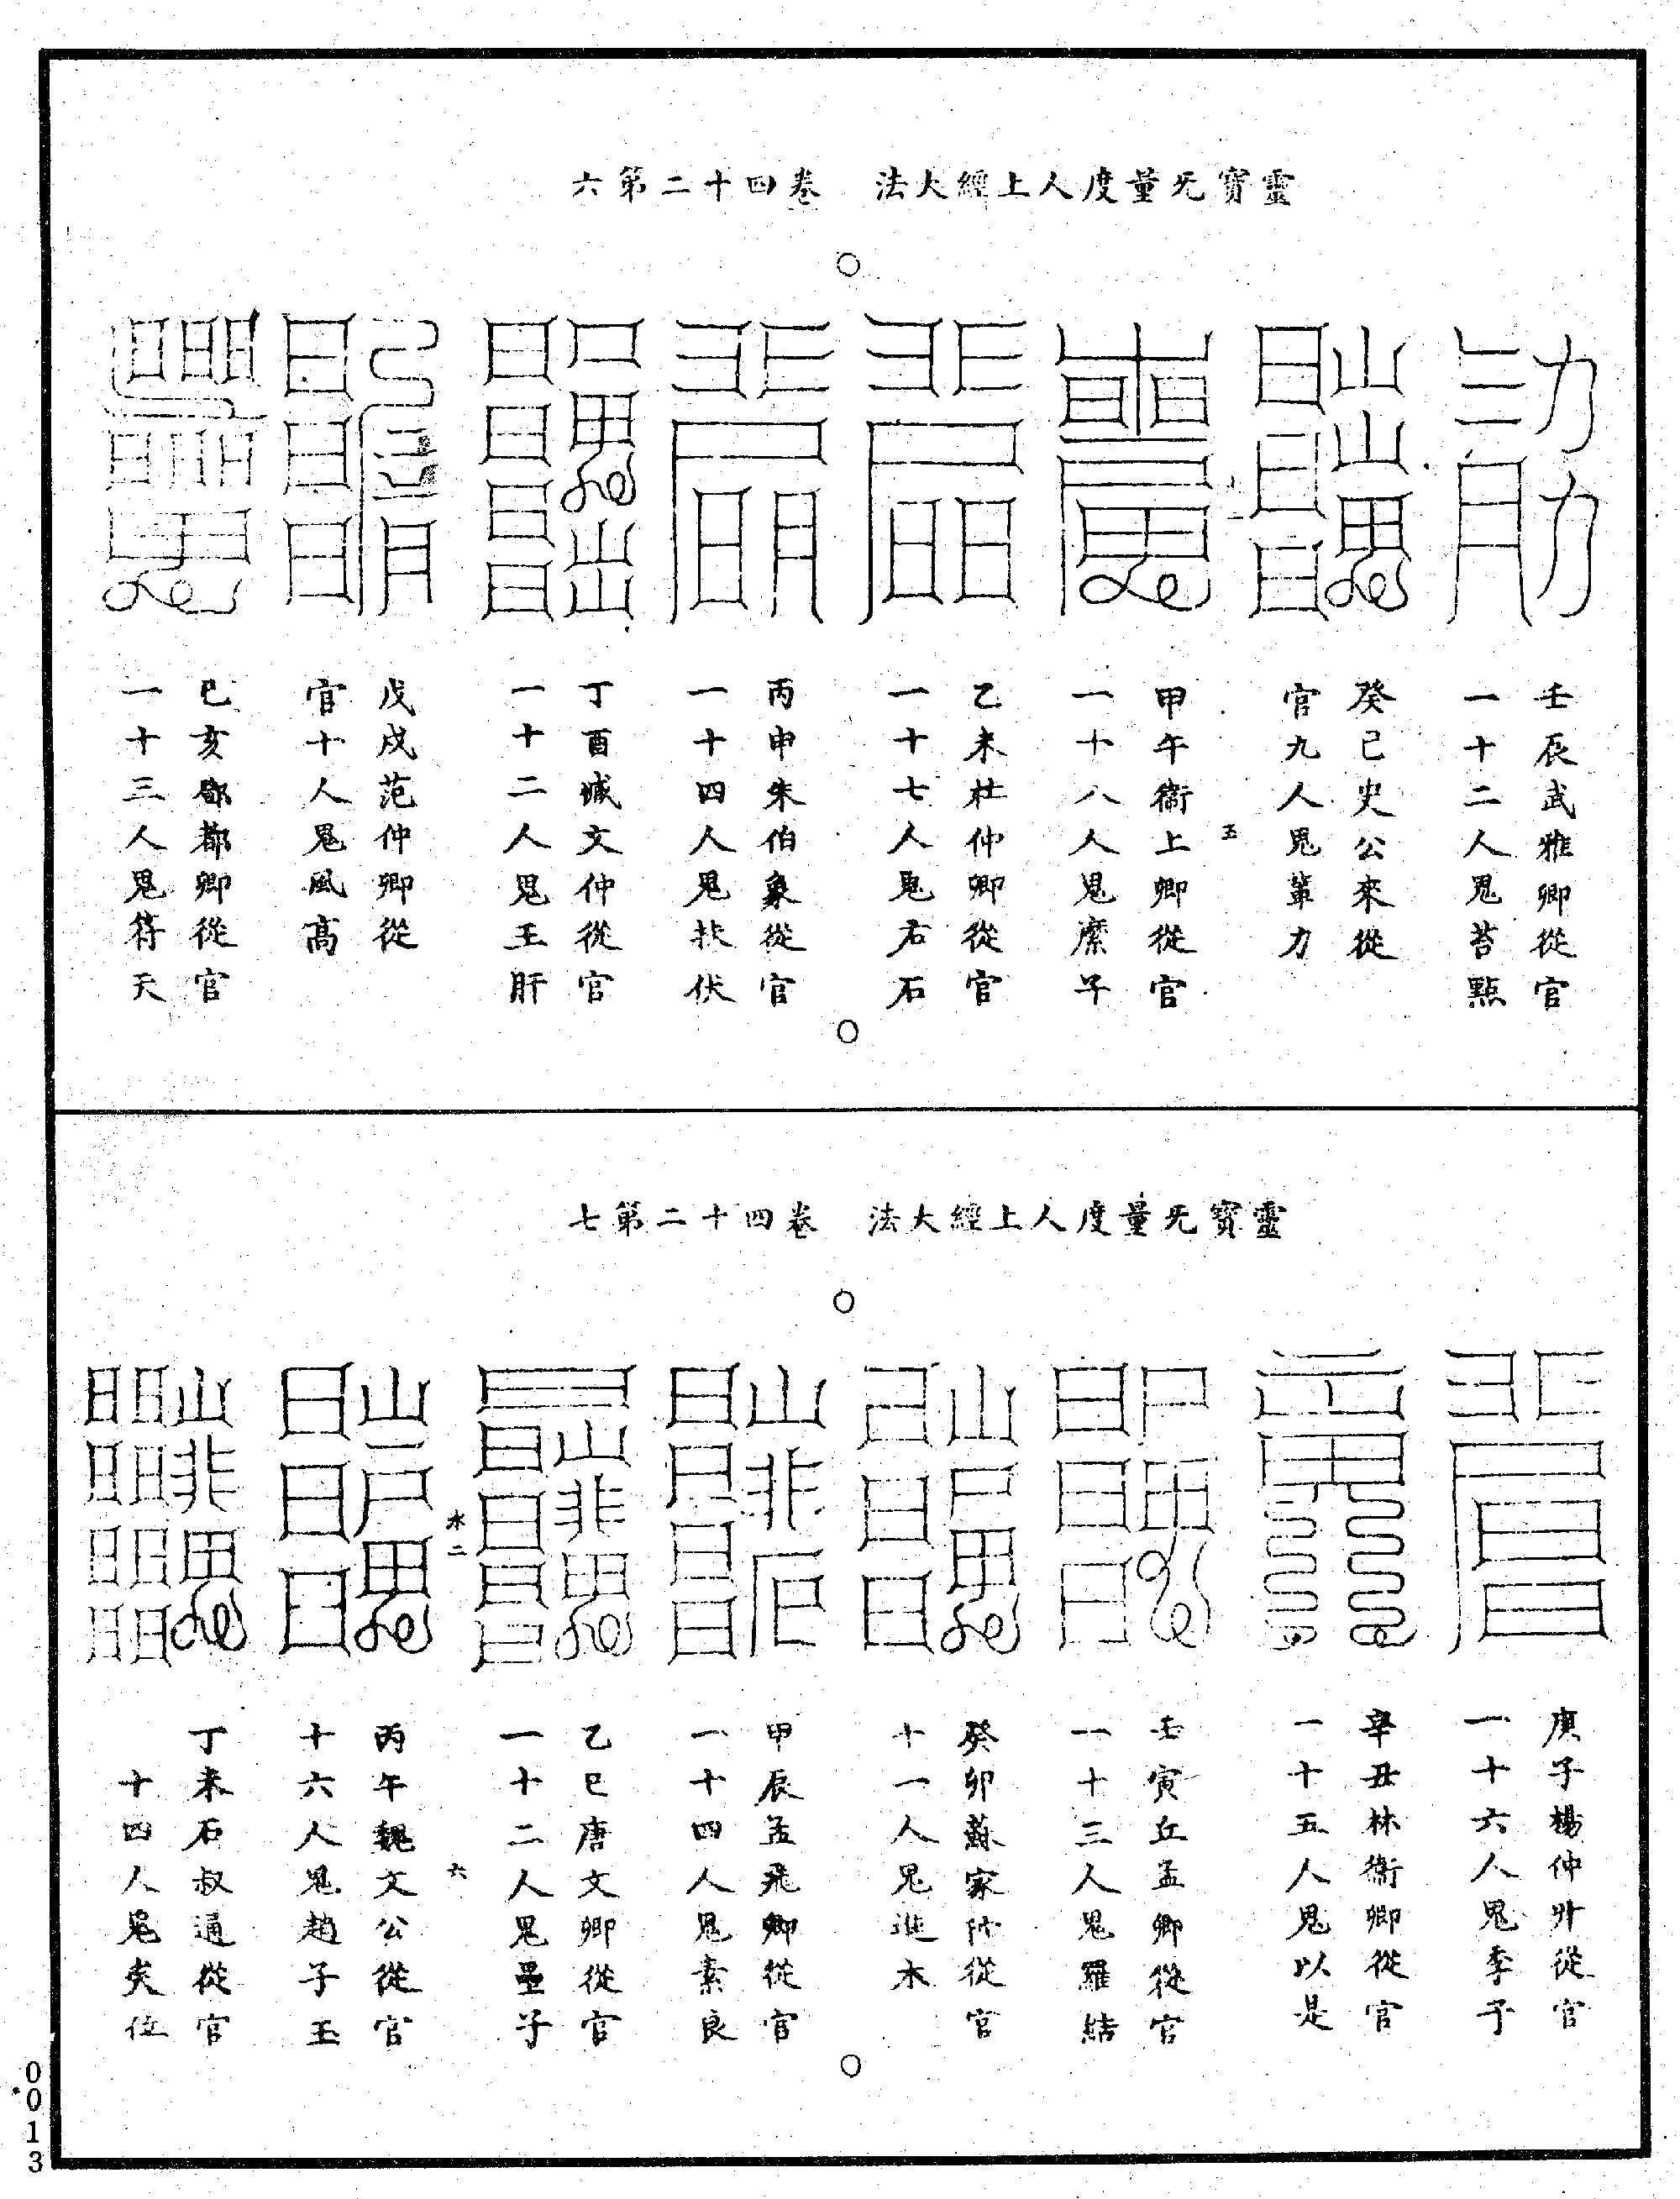 靈寶无量度人上經大法　卷四十二第六
壬辰武雅卿從官
一十二人鬼苔點
癸巳史公來從
官九人鬼輩力
五
甲午衞上卿從官
一十八人鬼縻子
乙未杜仲卿從官
一十七人鬼右石
丙申朱伯象從官
一十四人鬼扶伏
丁酉臧文仲從官
一十二人鬼王肝
戊戌范仲卿從
官十人鬼風高
己亥鄧都卿從官
一十三人鬼符天
靈寶无量度人上經大法　卷四十二第七
庚子楊仲升從官
一十六人鬼季子
辛丑林衞卿從官
一十五人鬼以是
壬寅丘孟卿從官
一十三人鬼羅結
癸卯蘇家從官
十一人鬼進木
甲辰孟飛卿從官
一十四人鬼素良
乙巳唐文卿從官
一十二人鬼墨子
水二
六
丙午魏文公從官
十六人鬼趙子玉
丁未石叔通從官
十四人鬼矣位
0013